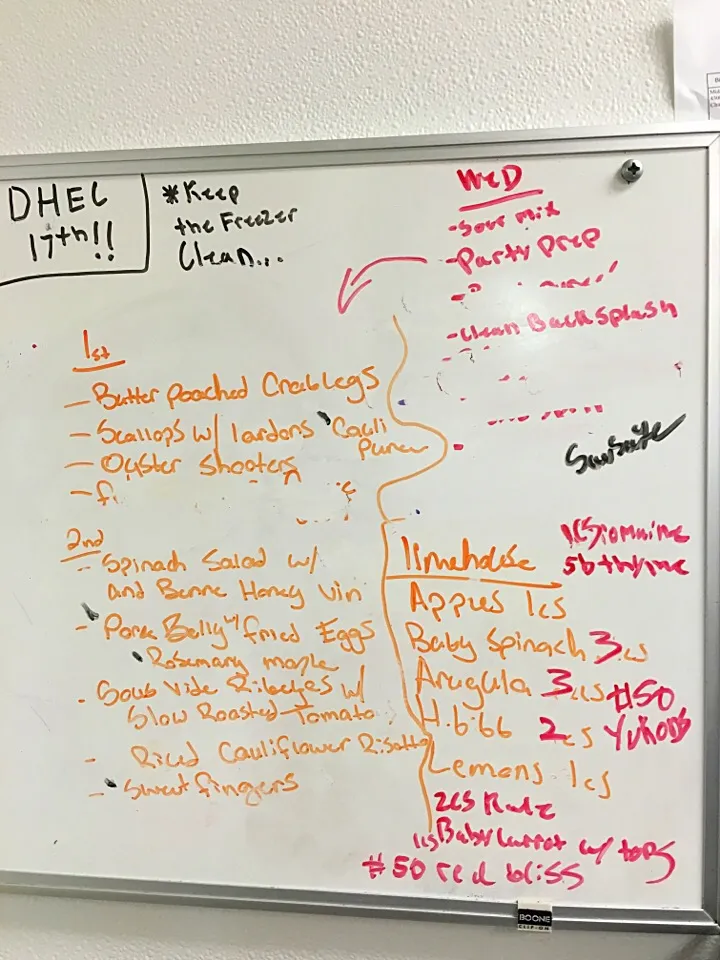 DHEC
17th!!
*Keep
the Freezer
Clean...
WED
- Sour mix
- Party Prep
- Clean Back Splash
1st
- Butter Poached Crab Legs
- Scallops w/ lardons Cauli
Puree
- Oyster Shooters
2nd
- Spinach Salad w/
and Benne Honey Vin
- Pork Belly w/ fried Eggs
Rosemary maple
- Sous Vide Ribeyes w/
Slow Roasted Tomato
- Riced Cauliflower Risotto
- Sweet fingers
1cs romaine
5lb thyme
limehouse
Apples 1cs
Baby Spinach 3cs
Arugula 3cs #50
H. bibb 2cs Yukons
Lemons 1cs
2cs Kale
1cs Baby Carrot w/ tops
#50 red bliss
BOONE